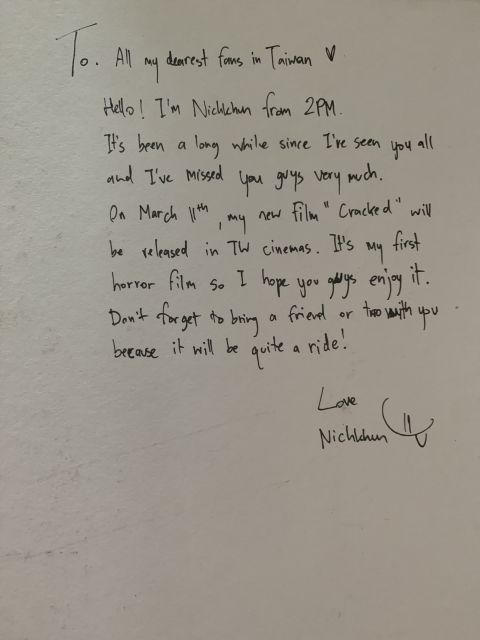 To. All my dearest fans in Taiwan ♥
Hello! I'm Nichkhun from 2PM.
It's been a long while since I've seen you all
and I've missed you guys very much.
On March 11th, my new film "Cracked" will
be released in TW cinemas. It's my first
horror film so I hope you guys enjoy it.
Don't forget to bring a friend or two with you
because it will be quite a ride!
Love
Nichkhun